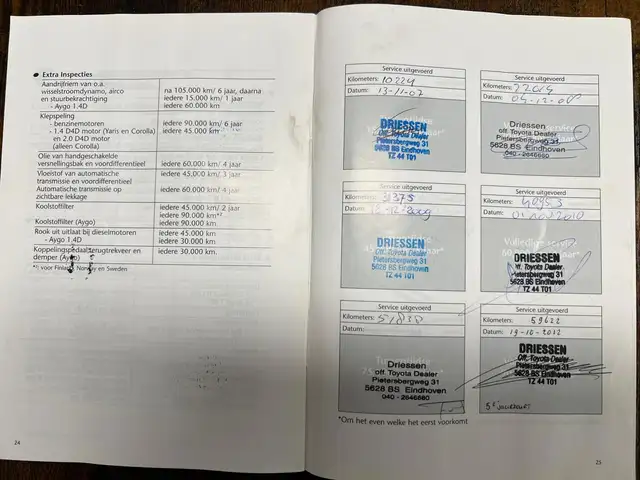 Extra Inspecties
Aandrijfriem van o.a.
wisselstroomdynamo, airco na 105.000 km/ 6 jaar, daarna
en stuurbekrachtiging iedere 15.000 km/ 1 jaar
- Aygo 1.4D iedere 60.000 km
Klepspeling
- benzinemotoren iedere 90.000 km/ 6 jaar
- 1.4 D4D motor (Yaris en Corolla) iedere 45.000 km
en 2.0 D4D motor
(alleen Corolla)
Olie van handgeschakelde
versnellingsbak en voordifferentieel iedere 60.000 km/ 4 jaar
Vloeistof van automatische iedere 45.000 km/ 3 jaar
transmissie en voordifferentieel
Automatische transmissie op iedere 60.000 km/ 4 jaar
zichtbare lekkage
Koolstoffilter iedere 45.000 km/ 2 jaar
iedere 90.000 km*¹
Koolstoffilter (Aygo) iedere 90.000 km.
Rook uit uitlaat bij dieselmotoren iedere 45.000 km
- Aygo 1.4D iedere 30.000 km
Koppelingspedaal terugtrekveer en iedere 30.000 km.
demper (Aygo)
*¹ voor Finland, Noorwegen en Sweden
24
Service uitgevoerd
Kilometers: 10224
Datum: 13-11-07
DRIESSEN
Off. Toyota Dealer
Pietersbergweg 31
5628 BS Eindhoven
TZ 44 T01
Service uitgevoerd
Kilometers:
Datum: 04-12-08
DRIESSEN
off. Toyota Dealer
Pietersbergweg 31
5628 BS Eindhoven
040 - 2646660
Service uitgevoerd
Kilometers: 31375
Datum: 2009
DRIESSEN
off. Toyota Dealer
Pietersbergweg 31
5628 BS Eindhoven
TZ 44 T01
Service uitgevoerd
Kilometers: 40953
Datum: 2010
Volledige
DRIESSEN
off. Toyota Dealer
Pietersbergweg 31
5628 BS Eindhoven
TZ 44 T01
Service uitgevoerd
Kilometers:
Datum:
Driessen
off. Toyota Dealer
Pietersbergweg 31
5628 BS Eindhoven
040 - 2646660
Service uitgevoerd
Kilometers: 59622
Datum: 19-10-2012
DRIESSEN
Off. Toyota Dealer
Pietersbergweg 31
5628 BS Eindhoven
TZ 44 T01
*Om het even welke het eerst voorkomt
25